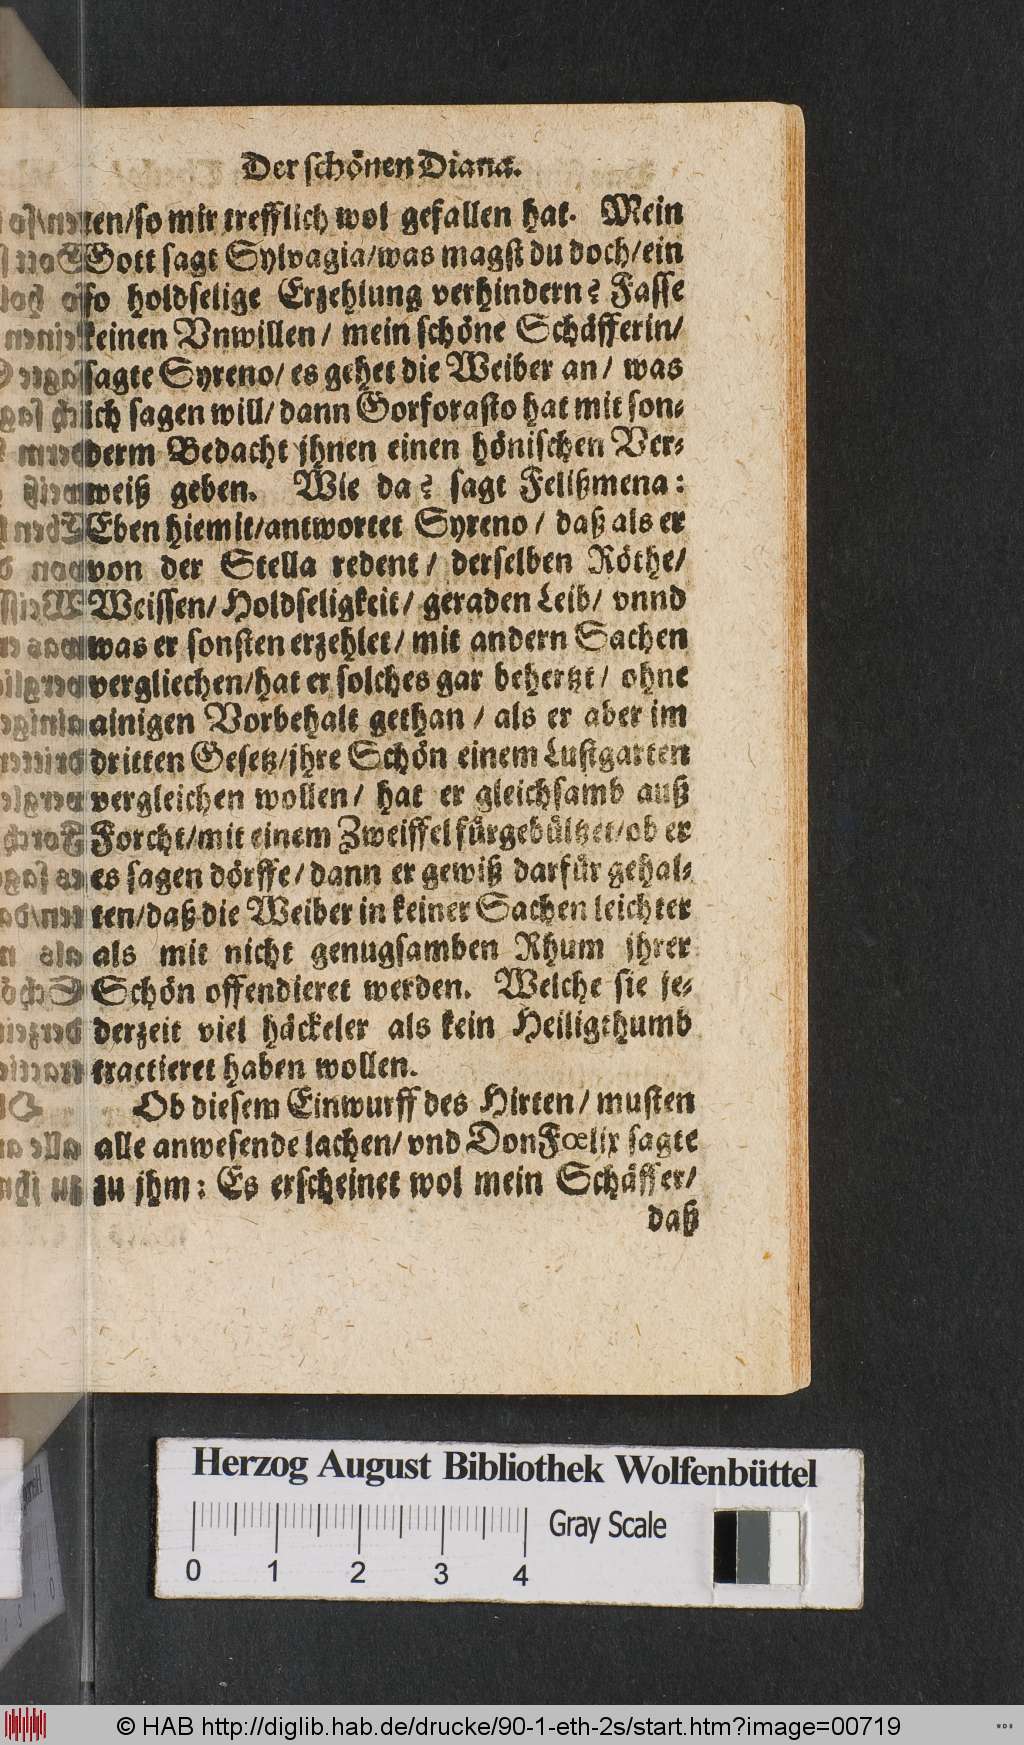 Der schönen Diana.
ten/so mir trefflich wol gefallen hat. Mein
Gott sagt Sylvagia/was magst du doch/ein
so holdselige Erzehlung verhindern? Fasse
keinen Vnwillen/ mein schöne Schäfferin/
sagte Syreno/ es gehet die Weiber an/ was
ich sagen will/ dann Gorforasto hat mit son-
derm Bedacht jhnen einen hönischen Ver-
weiß geben. Wie da? sagt Felißmena:
Eben hiemit/antwortet Syreno/ daß als er
von der Stella redent/ derselben Röthe/
Weissen/ Holdseligkeit/ geraden Leib/ vnnd
was er sonsten erzehlet/ mit andern Sachen
vergliechen/hat er solches gar behertzt/ ohne
ainigen Vorbehalt gethan/ als er aber im
dritten Gesetz/jhre Schön einem Lustgarten
vergleichen wollen/ hat er gleichsamb auß
Forcht/mit einem Zweiffel fürgebültzet/ob er
es sagen dörffe/ dann er gewiß darfür gehal-
ten/daß die Weiber in keiner Sachen leichter
als mit nicht genugsamben Rhum jhrer
Schön offendieret werden. Welche sie je-
derzeit viel häckeler als kein Heiligthumb
tractieret haben wollen.
Ob diesem Einwurff des Hirten/ musten
alle anwesende lachen/ vnd Don Fœlix sagte
zu jhm: Es erscheinet wol mein Schäffer/
daß
Herzog August Bibliothek Wolfenbüttel
Gray Scale
0 1 2 3 4
© HAB http://diglib.hab.de/drucke/90-1-eth-2s/start.htm?image=00719